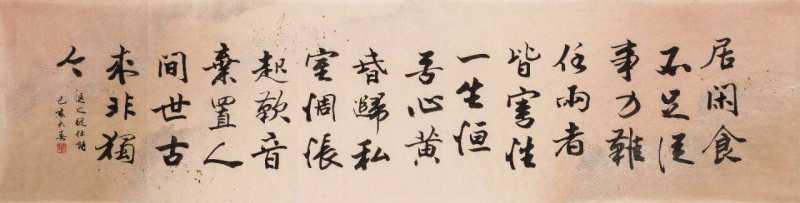 居閑食
不足從
事力難
任兩者
皆害性
一生恒
苦心黃
昏歸私
室惆悵
起歎音
棄置人
間世古
來非獨
今
退之從仕詩
己亥